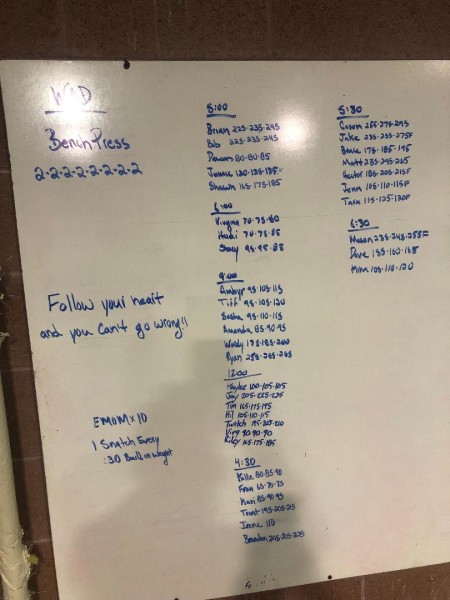 WOD
Bench Press
2-2-2-2-2-2-2-2
Follow your heart
and you can't go wrong!!
EMOM x 10
1 Snatch Every
:30 Build in weight
5:00
Brian 225-235-245
Bob 225-235-245
80-80-85
120-125-135F
Shawn 165-175-185
6:00
Virginia 70-75-80
Heidi 70-75-85
Stacy 95-95-85
9:00
95-105-115
Tiff 95-105-120
Sasha 95-110-115
Amanda 85-90-95
Woody 175-185-200
Ryan 255-265-265
12:00
Haylee 100-105-105
Jay 205-225-235
Tim 165-175-195
Hil 105-110-115
Twitch 195-205-210
Ving 90-90-90
Riley 165-175-185
4:30
Kalla 80-85-90
Fran 65-70-75
Kari 85-90-95
Trent 195-205-215
Irene 110
Brandon 205-205-225
5:30
255-275-295
Jake 235-255-275F
175-185-195
Matt 235-245-265
Hector 185-205-215F
Jenn 105-110-115F
Tara 115-125-130F
6:30
Mason 235-245-255F
Dave 155-160-165
Kim 105-110-120